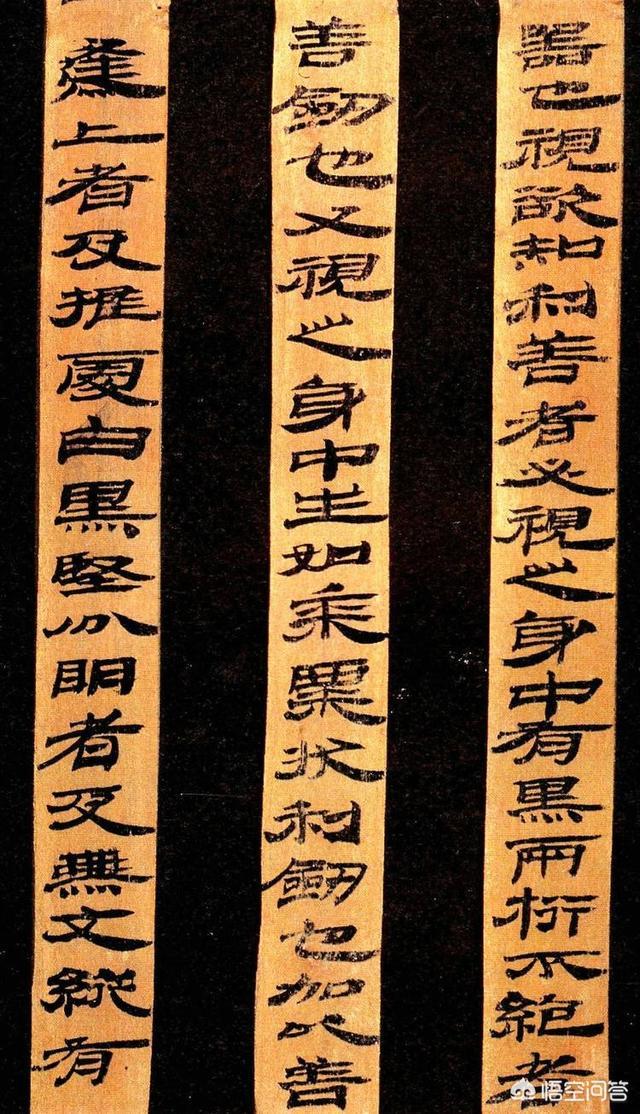 器也視欲知利善者必視之身中有黑兩桁不絕者
善劍也又視之身中生如黍粟狀利劍也加以善
上者及推處白黑堅分明者及無文縱有
悟空问答